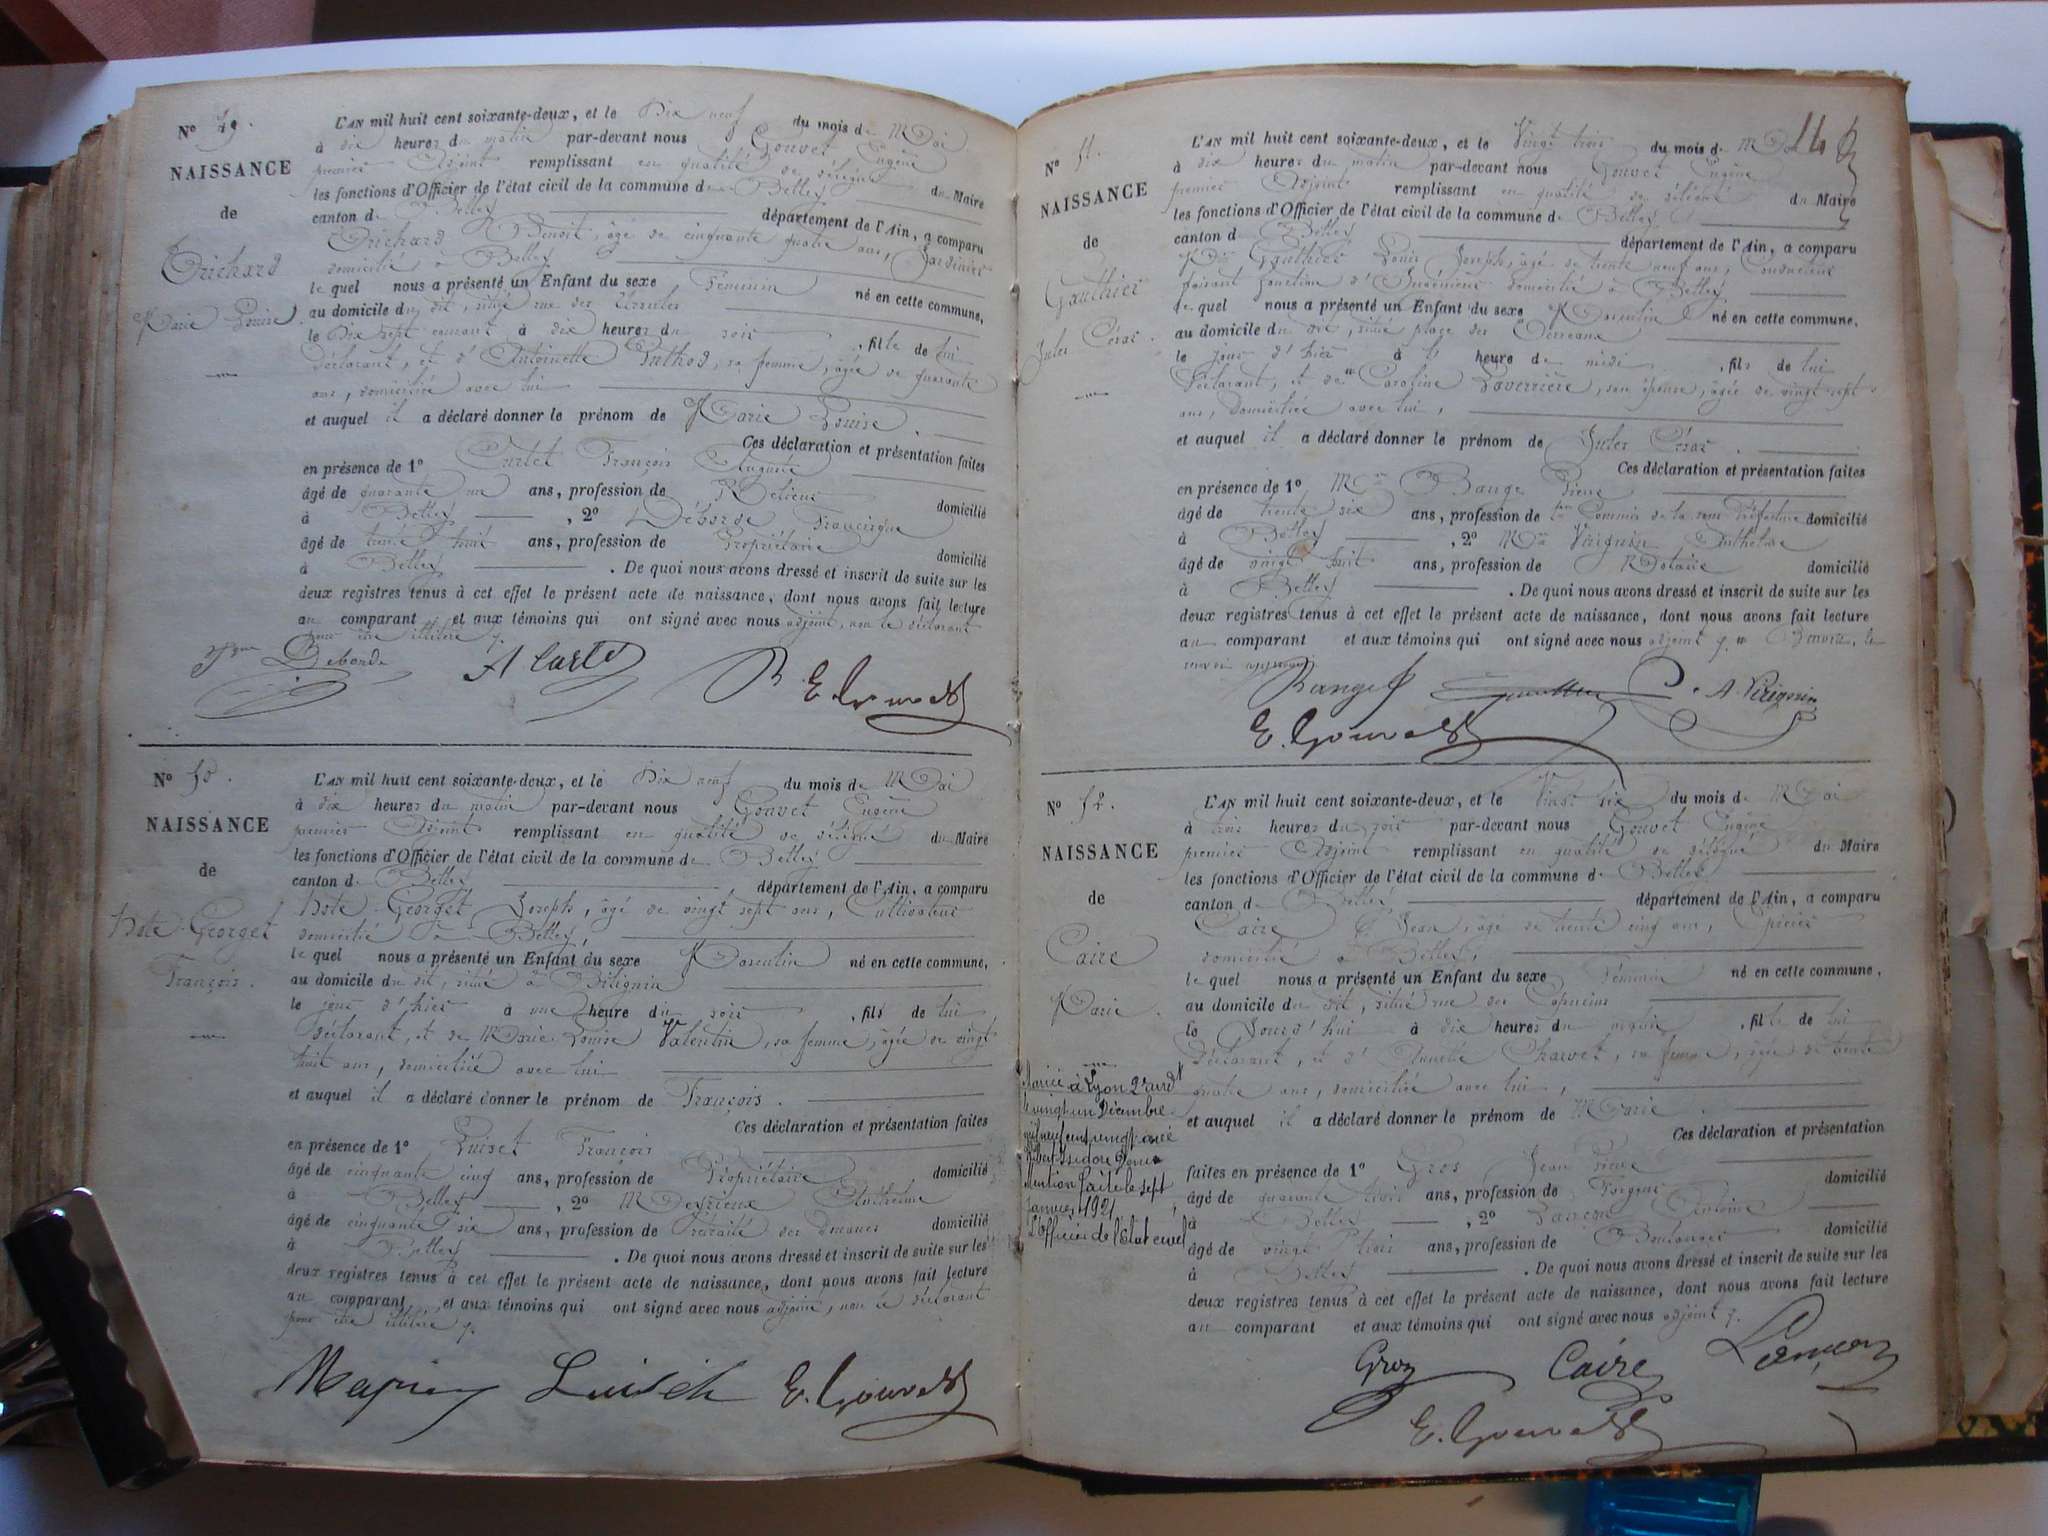 N° 49.
NAISSANCE
de
Trichard
Marie Louise.
L'AN mil huit cent soixante-deux, et le Dix neuf du mois de Mai
à dix heures du matin par-devant nous Gouvet Eugène
premier Adjoint remplissant en qualité de délégué du Maire
les fonctions d'Officier de l'état civil de la commune de Belley
canton de Belley département de l'Ain, a comparu
Trichard Benoit, âgé de cinquante quatre ans, Jardinier
domicilié à Belley
le quel nous a présenté un Enfant du sexe Féminin né en cette commune,
au domicile du dit, situé rue des Ursules
le Dix sept courant à dix heures du soir, fille de lui
déclarant, et d'Antoinette, sa femme, âgée de quarante
ans, domiciliée avec lui
et auquel il a déclaré donner le prénom de Marie Louise.
Ces déclaration et présentation faites
en présence de 1° François Auguste
âgé de quarante un ans, profession de Relieur domicilié
à Belley, 2° Déborde Francisque
âgé de trente huit ans, profession de Propriétaire domicilié
à Belley. De quoi nous avons dressé et inscrit de suite sur les
deux registres tenus à cet effet le présent acte de naissance, dont nous avons fait lecture
au comparant et aux témoins qui ont signé avec nous adjoint, non le déclarant
pour être illitéré
Deborde
E. Gouvet
N° 50.
NAISSANCE
de
Hote-Georget
François.
L'AN mil huit cent soixante-deux, et le Dix neuf du mois de Mai
à dix heures du matin par-devant nous Gouvet Eugène
premier Adjoint remplissant en qualité de délégué du Maire
les fonctions d'Officier de l'état civil de la commune de Belley
canton de Belley département de l'Ain, a comparu
Hote-Georget Joseph, âgé de vingt sept ans, Cultivateur
domicilié à Belley
le quel nous a présenté un Enfant du sexe Masculin né en cette commune,
au domicile du dit, situé à Bitignin
le jour d'hier à une heure du soir, fils de lui
déclarant, et de Marie Louise Valentin, sa femme, âgée de vingt
huit ans, domiciliée avec lui
et auquel il a déclaré donner le prénom de François.
Ces déclaration et présentation faites
en présence de 1° Luiset François
âgé de cinquante cinq ans, profession de Propriétaire domicilié
à Belley, 2° Anthelme
âgé de cinquante six ans, profession de Retraité des douanes domicilié
à Belley. De quoi nous avons dressé et inscrit de suite sur les
deux registres tenus à cet effet le présent acte de naissance, dont nous avons fait lecture
au comparant et aux témoins qui ont signé avec nous adjoint, non le déclarant
pour être illitéré
E. Gouvet
N° 51.
NAISSANCE
de
Gauthier
Jules César.
L'AN mil huit cent soixante-deux, et le Vingt trois du mois de Mai
à dix heures du matin par-devant nous Gouvet Eugène
premier Adjoint remplissant en qualité de délégué du Maire
les fonctions d'Officier de l'état civil de la commune de Belley
canton de Belley département de l'Ain, a comparu
Gauthier Louis Joseph, âgé de trente neuf ans, Conducteur
faisant fonction d'Ingénieur domicilié à Belley
le quel nous a présenté un Enfant du sexe Masculin né en cette commune,
au domicile du dit, situé place des Terreaux
le jour d'hier à heure de midi, fils de lui
déclarant, et de Caroline Laverrière, son épouse, âgée de vingt sept
ans, domiciliée avec lui,
et auquel il a déclaré donner le prénom de Jules César.
Ces déclaration et présentation faites
en présence de 1° Bauge Pierre
âgé de trente six ans, profession de Commis de la sous Préfecture domicilié
à Belley, 2° Virignin Anthelme
âgé de vingt huit ans, profession de Notaire domicilié
à Belley. De quoi nous avons dressé et inscrit de suite sur les
deux registres tenus à cet effet le présent acte de naissance, dont nous avons fait lecture
au comparant et aux témoins qui ont signé avec nous adjoint
A. Virignin
E. Gouvet
N° 52.
NAISSANCE
de
Caire
Marie.
Mariée à Lyon 2e arrdt
le vingt un Décembre
mil neuf cent vingt avec
Isidore
Mention faite le sept
Janvier 1921
L'Officier de l'état civil
L'AN mil huit cent soixante-deux, et le Vingt six du mois de Mai
à trois heures du soir par-devant nous Gouvet Eugène
premier Adjoint remplissant en qualité de délégué du Maire
les fonctions d'Officier de l'état civil de la commune de Belley
canton de Belley département de l'Ain, a comparu
Caire Jean, âgé de trente cinq ans, Epicier
domicilié à Belley,
le quel nous a présenté un Enfant du sexe Féminin né en cette commune,
au domicile du dit, situé rue des Capucins
le Jourd'hui à dix heures du matin, fille de lui
déclarant, et d'Annette Charvet, sa femme, âgée de trente
quatre ans, domiciliée avec lui,
et auquel il a déclaré donner le prénom de Marie.
Ces déclaration et présentation
faites en présence de 1° Gros Jean Pierre
âgé de quarante trois ans, profession de domicilié
à Belley, 2° Lançon Antoine
âgé de vingt trois ans, profession de Boulanger domicilié
à Belley. De quoi nous avons dressé et inscrit de suite sur les
deux registres tenus à cet effet le présent acte de naissance, dont nous avons fait lecture
au comparant et aux témoins qui ont signé avec nous adjoint
Gros Caire Lançon
E. Gouvet